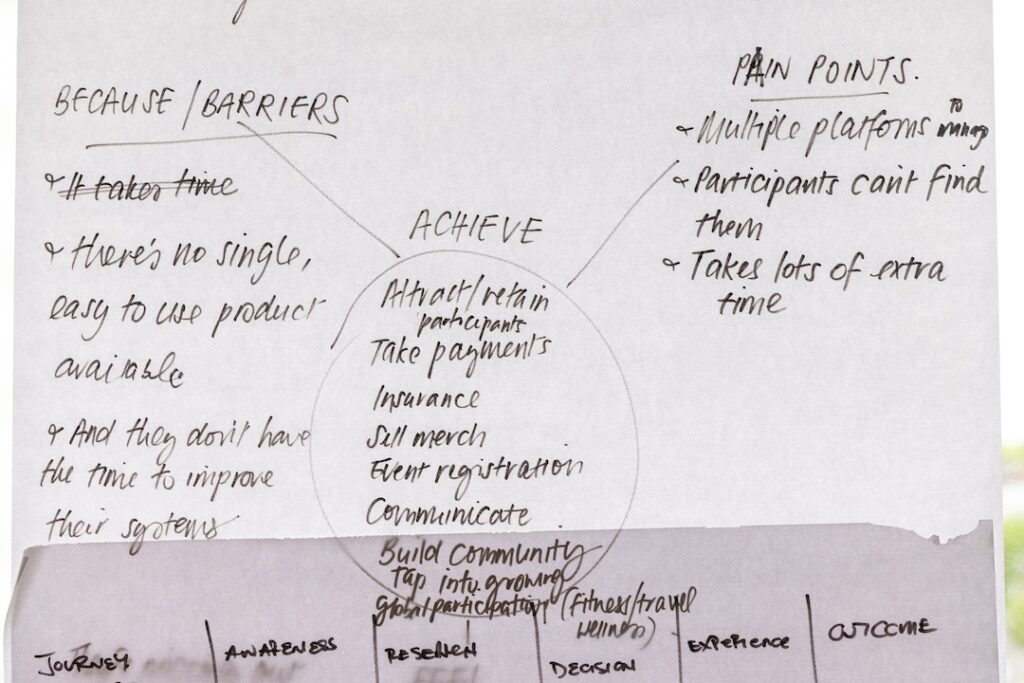 BECAUSE / BARRIERS
It takes time
there's no single,
easy to use product
available
And they don't have
the time to improve
their systems
ACHIEVE
Attract/retain
participants
Take payments
Insurance
Sell merch
Event registration
Communicate
Build community
Tap into growing
global participation (Fitness/travel
wellness)
PAIN POINTS.
Multiple platforms to
manage
Participants can't find
them
Takes lots of extra
time
JOURNEY
AWARENESS
RESEARCH
DECISION
EXPERIENCE
OUTCOME